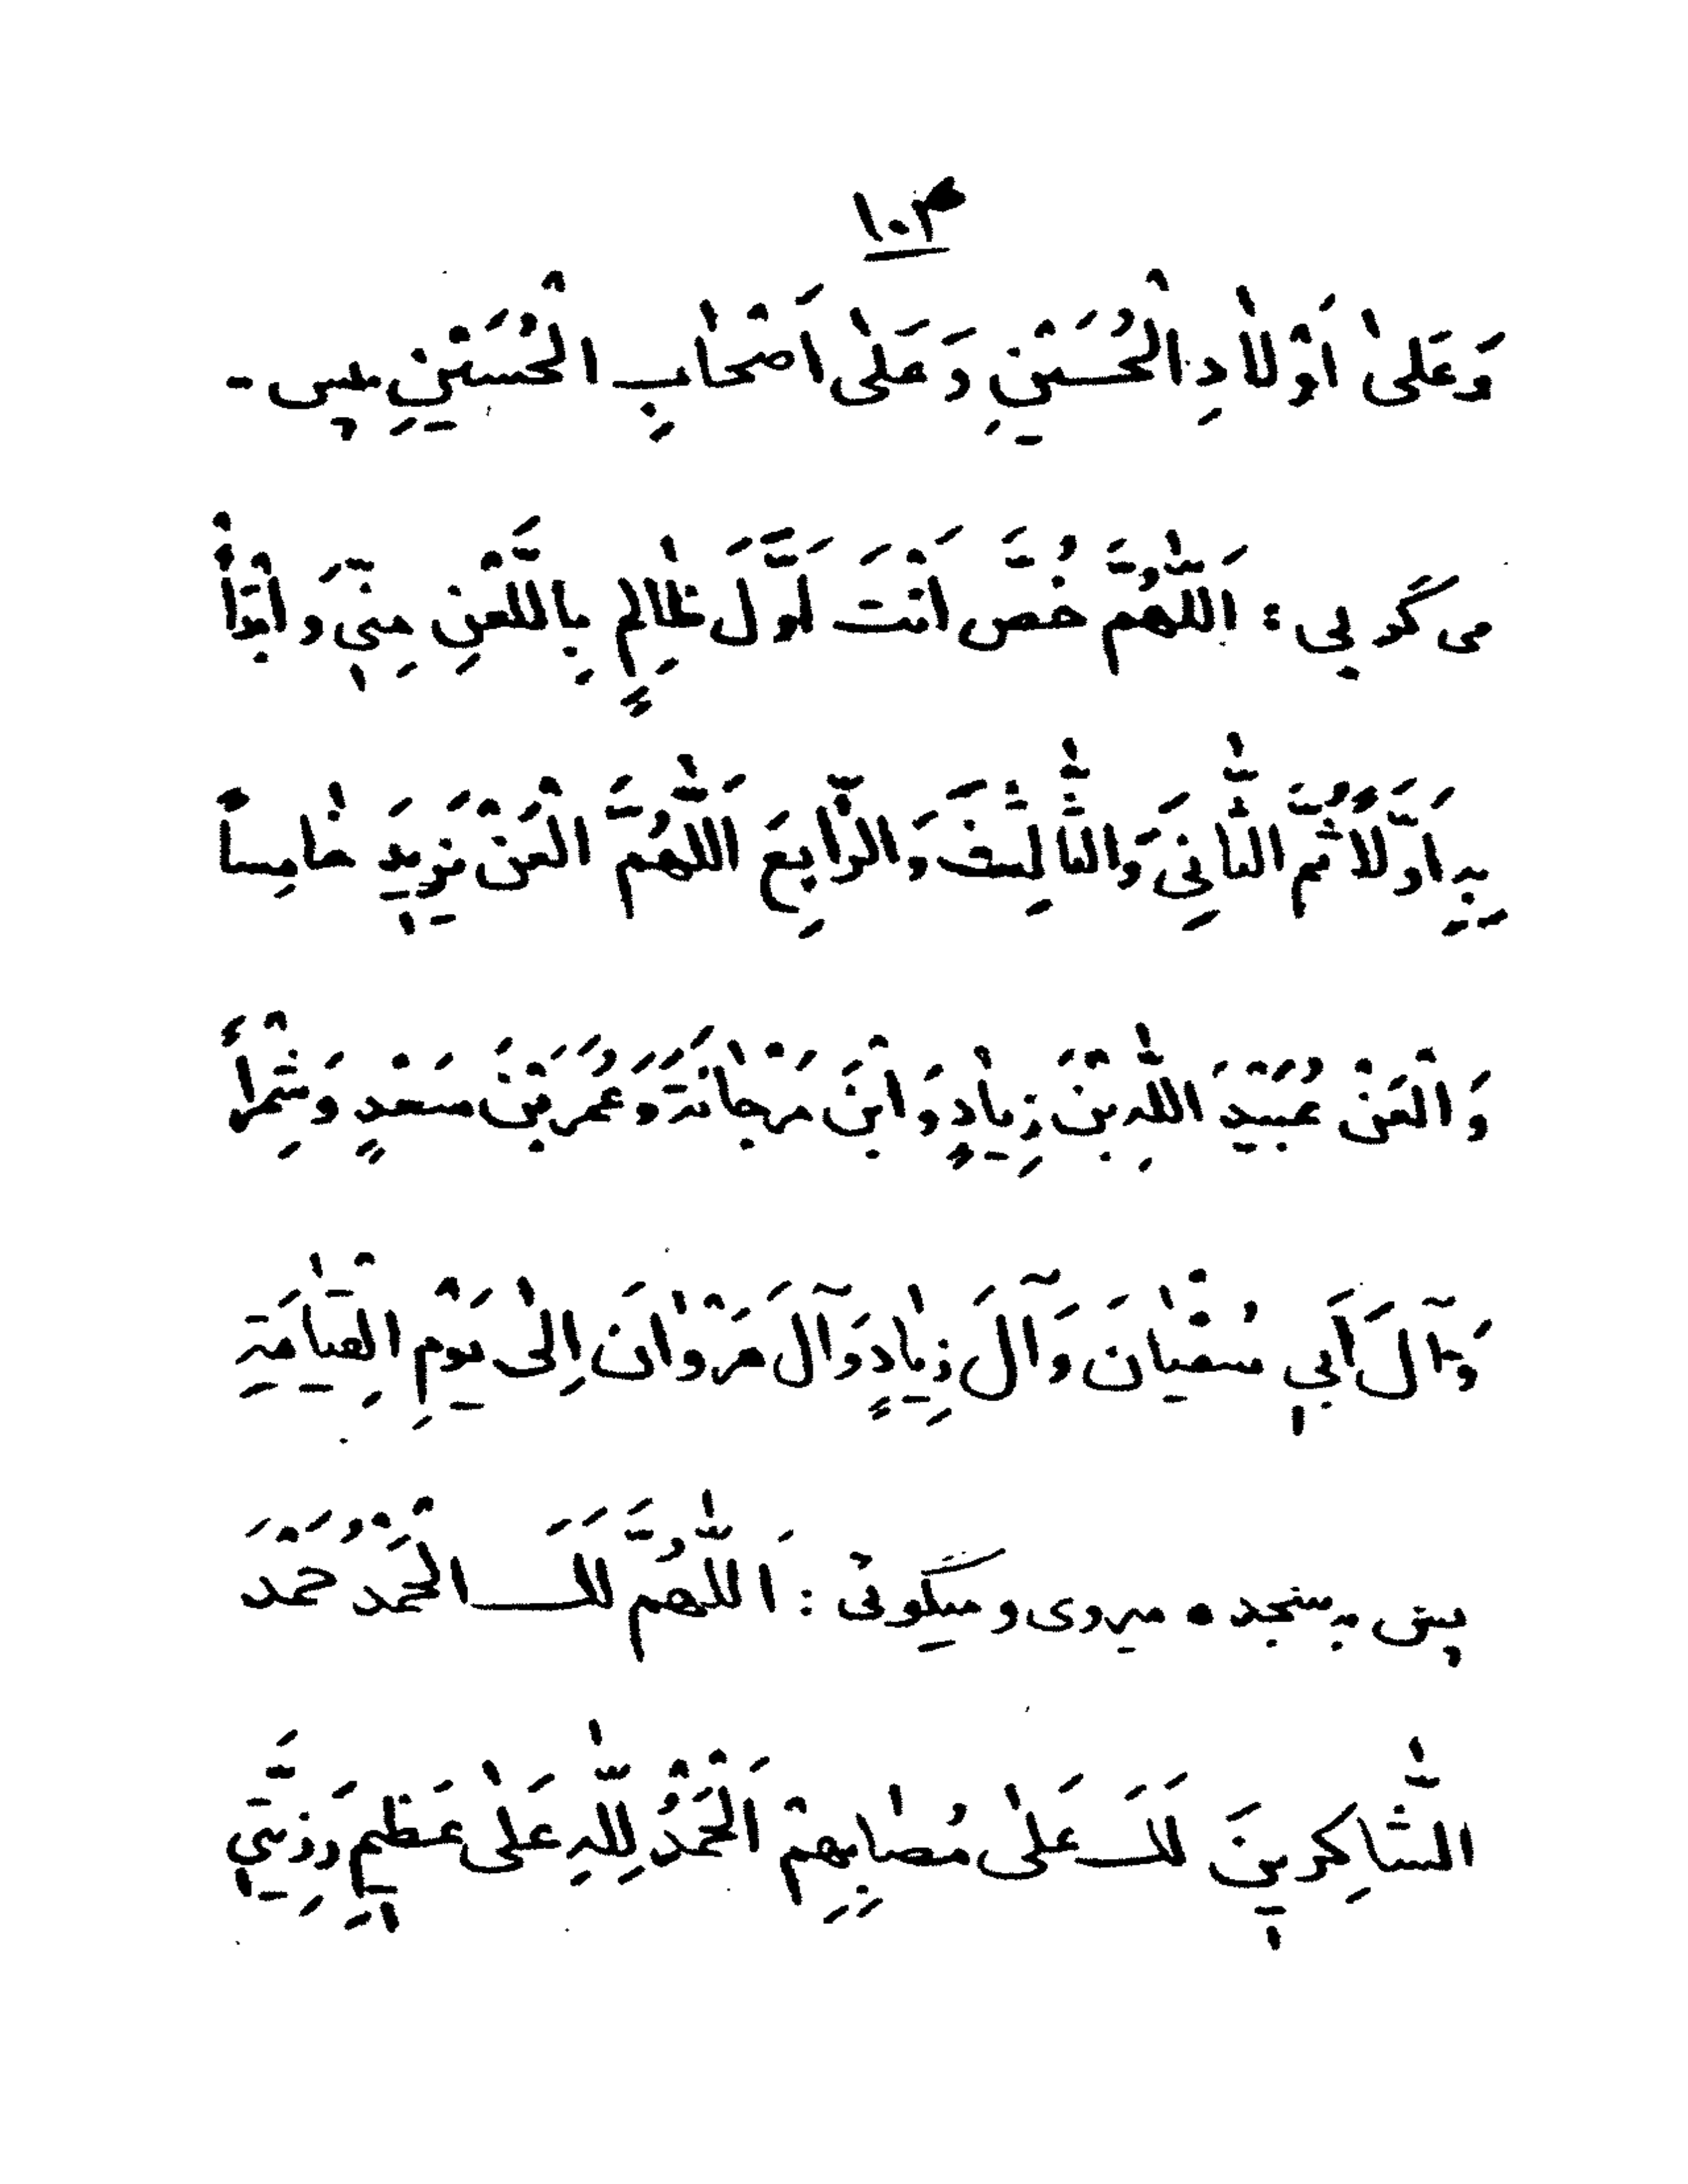 ۱۰۳
وَعَلىٰ اَوْلاٰدِ الْحُسَيْنِ وَعَلىٰ اَصْحٰابِ الْحُسَيْنِ سپس -
می گویی : اَللّٰهُمَّ خُصَّ اَنْتَ اَوَّلَ ظٰالِمٍ بِاللَّعْنِ مِنّٖی وَ ابْدَأْ
بِهِ اَوَّلاً ثُمَّ الثّٰانِیَ وَالثّٰالِثَ وَالرّٰابِعَ اَللّٰهُمَّ الْعَنْ يَزٖيدَ خٰامِساً
وَ الْعَنْ عُبَيْدَ اللّٰهِ بْنَ زِيٰادٍ وَ ابْنَ مَرْجٰانَةَ وَ عُمَرَ بْنَ سَعْدٍ وَ شِمْراً
وَ آلَ اَبٖی سُفْيٰانَ وَ آلَ زِيٰادٍ وَ آلَ مَرْوٰانَ اِلىٰ يَوْمِ الْقِيٰامَةِ
پس به سجده میروی و میگوئی : اَللّٰهُمَّ لَكَ الْحَمْدُ حَمْدَ
الشّٰاكِرٖينَ لَكَ عَلىٰ مُصٰابِهِمْ اَلْحَمْدُ لِلّٰهِ عَلىٰ عَظٖيمِ رَزِيَّتٖی